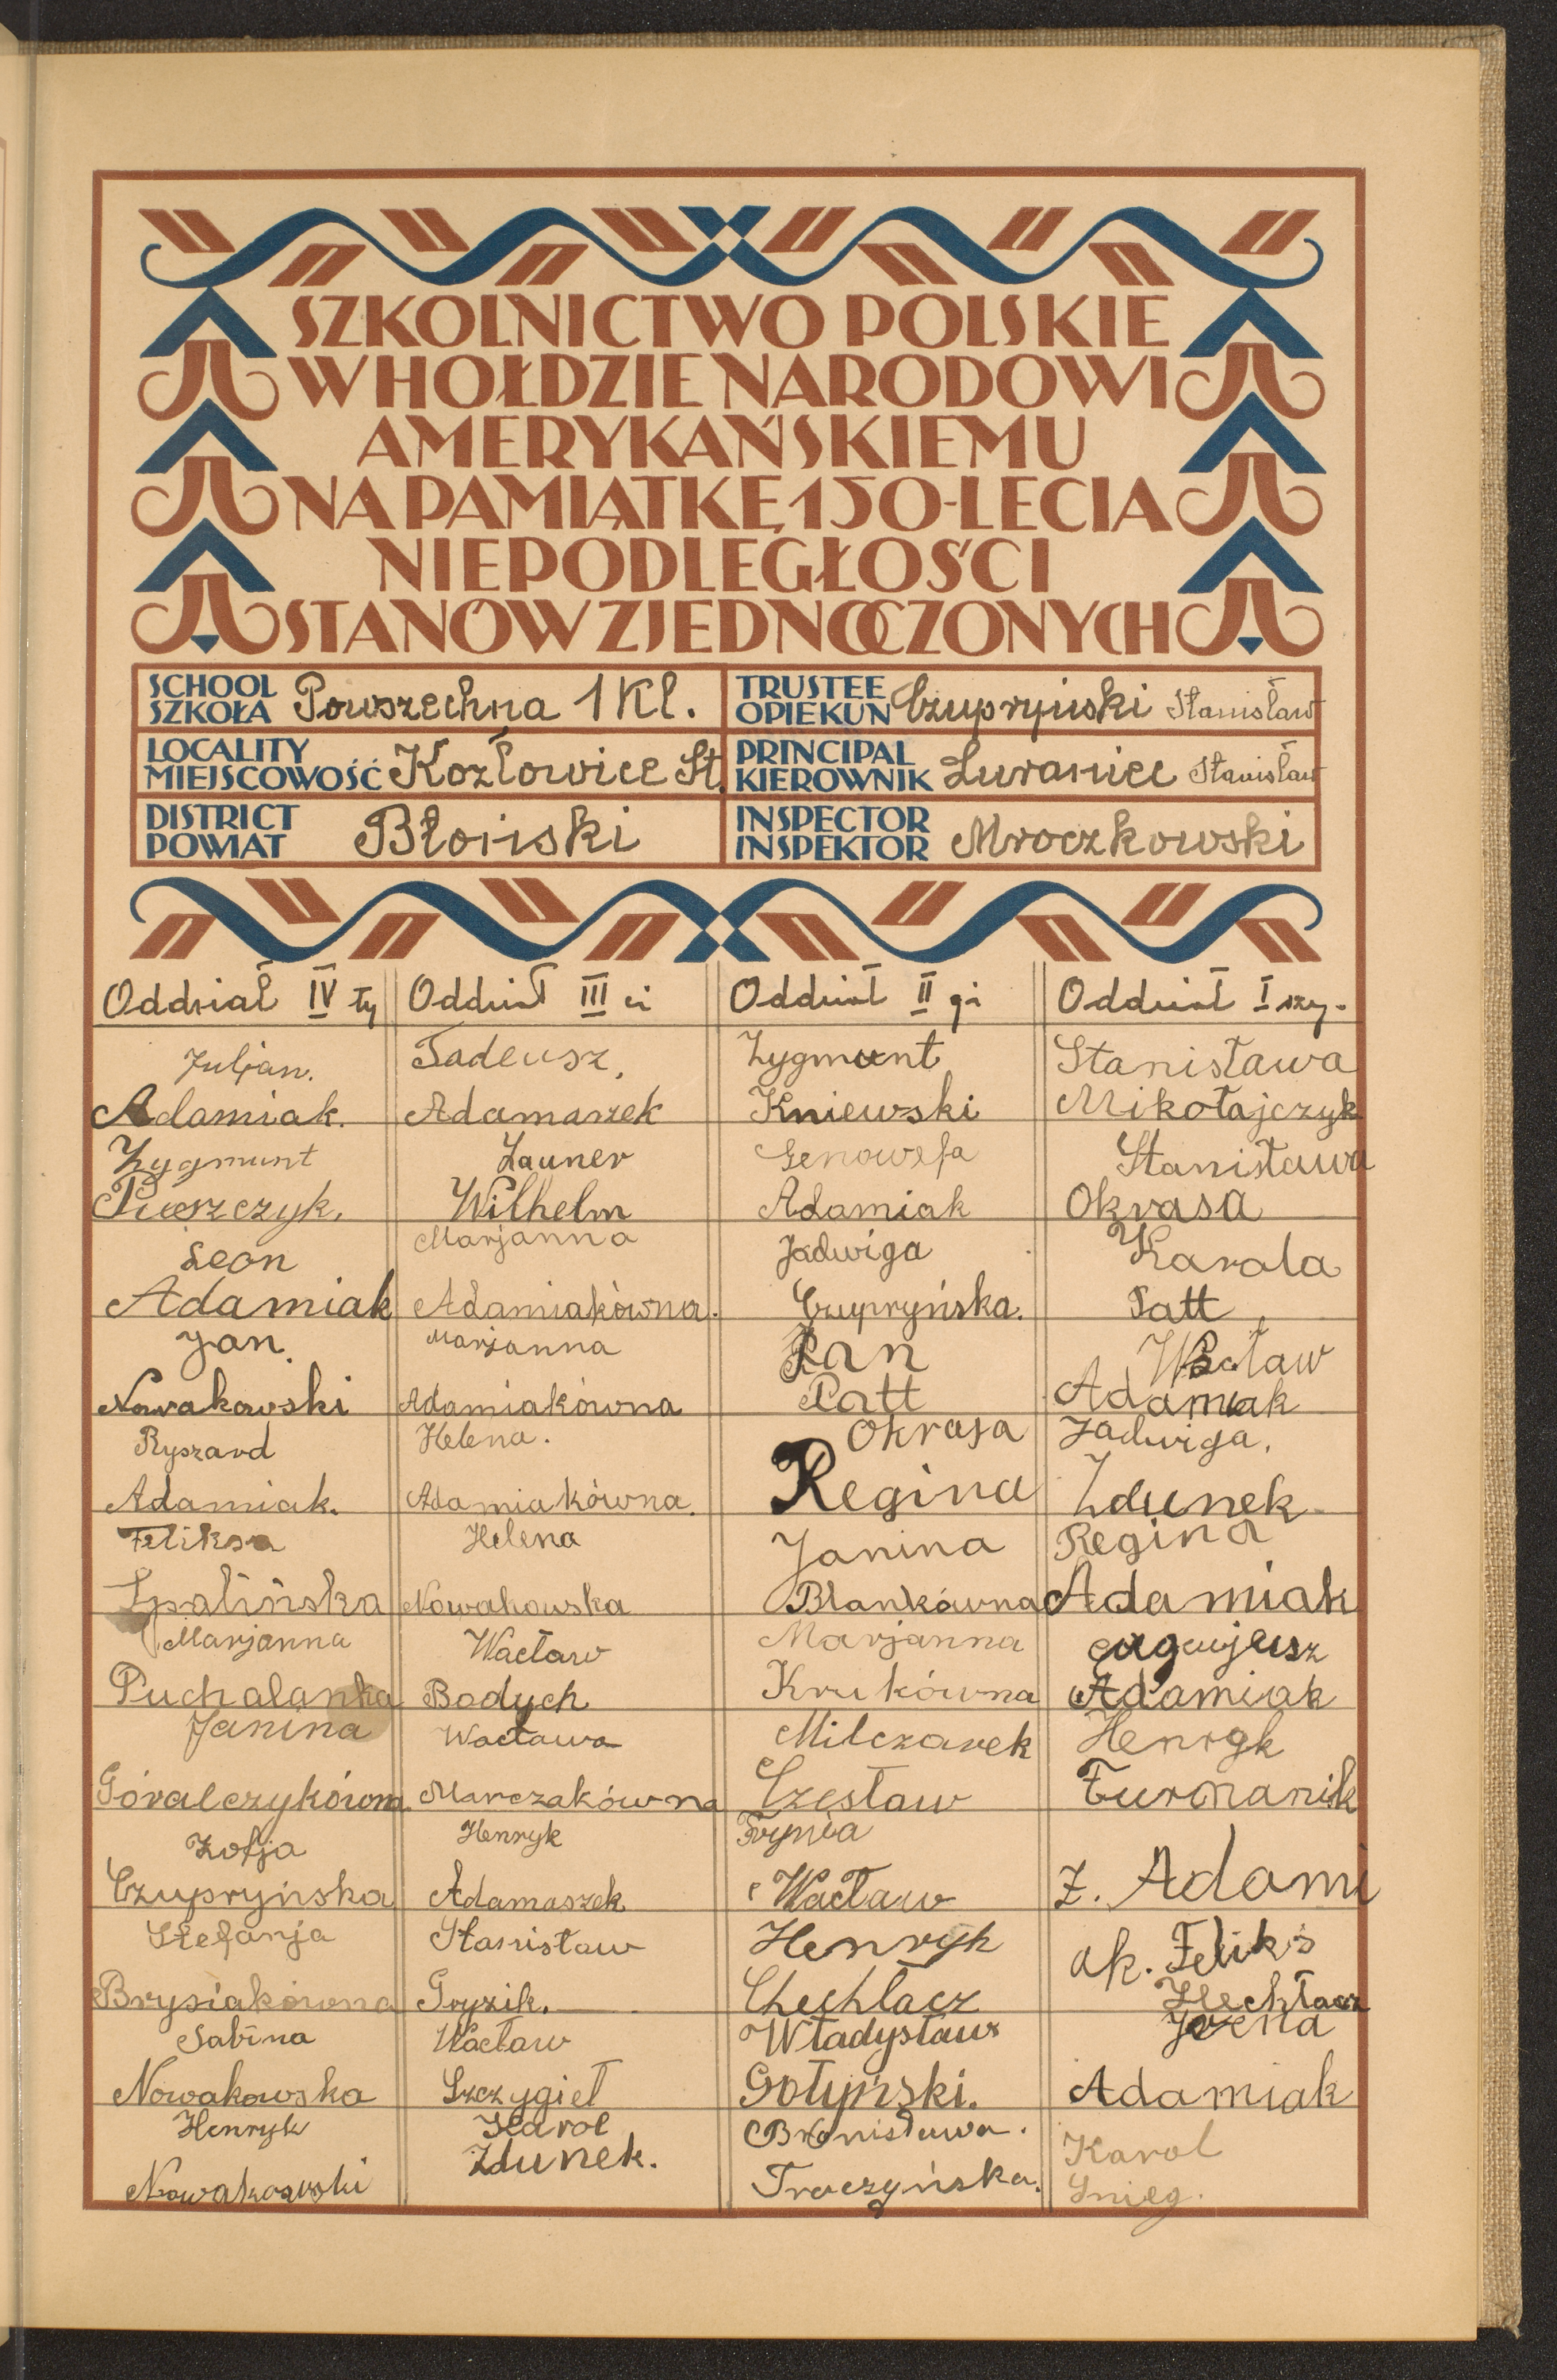 SZKOLNICTWO POLSKIE
W HOŁDZIE NARODOWI
AMERYKAŃSKIEMU
NA PAMIĄTKĘ 150-LECIA
NIEPODLEGŁOŚCI
STANÓW ZJEDNOCZONYCH
SCHOOL
SZKOŁA Powszechna 1 Kl.
TRUSTEE
OPIEKUN Czupryński Stanisław
LOCALITY
MIEJSCOWOŚĆ Kozłowice St.
PRINCIPAL
KIEROWNIK Luraniec Stanisław
DISTRICT
POWIAT Błoński
INSPECTOR
INSPEKTOR Mroczkowski
Oddział IV ty
Juljan.
Adamiak.
Zygmunt
Leon
Adamiak
Jan.
Nowakowski
Ryszard
Adamiak.
Feliksa
Spalińska
Marjanna
Puchalanka
Janina
Góralczykówna
Zofja
Czupryńska
Stefanja
Brysiakówna
Sabina
Nowakowska
Henryk
Nowakowski
Oddział III ci
Tadeusz,
Adamaszek
Launer
Wilhelm
Marjanna
Adamiakówna.
Marjanna
Adamiakówna
Helena.
Adamiakówna.
Helena
Nowakowska
Wacław
Bodych
Wacława
Marczakówna
Henryk
Adamaszek
Stanisław
Gryzik.
Wacław
Szczygieł
Karol
Zdunek.
Oddział II gi
Zygmunt
Kniewski
Genowefa
Adamiak
Jadwiga
Czupryńska.
Jan
Patt
Okrasa
Regina
Janina
Blankówna
Marjanna
Krukówna
Milczarek
Czesław
Frynia
Wacław
Henryk
Chechłacz
Władysław
Gołyński.
Bronisława.
Troczyńska.
Oddział I szy.
Stanisława
Mikołajczyk
Stanisława
Okrasa
Karola
Patt
Wacław
Adamiak
Jadwiga.
Zdunek
Regina
Adamiak
Adamiak
Henryk
Furmanik
Z. Adami
ak. Feliks
Hechłacz
Adamiak
Karol
Śnieg.